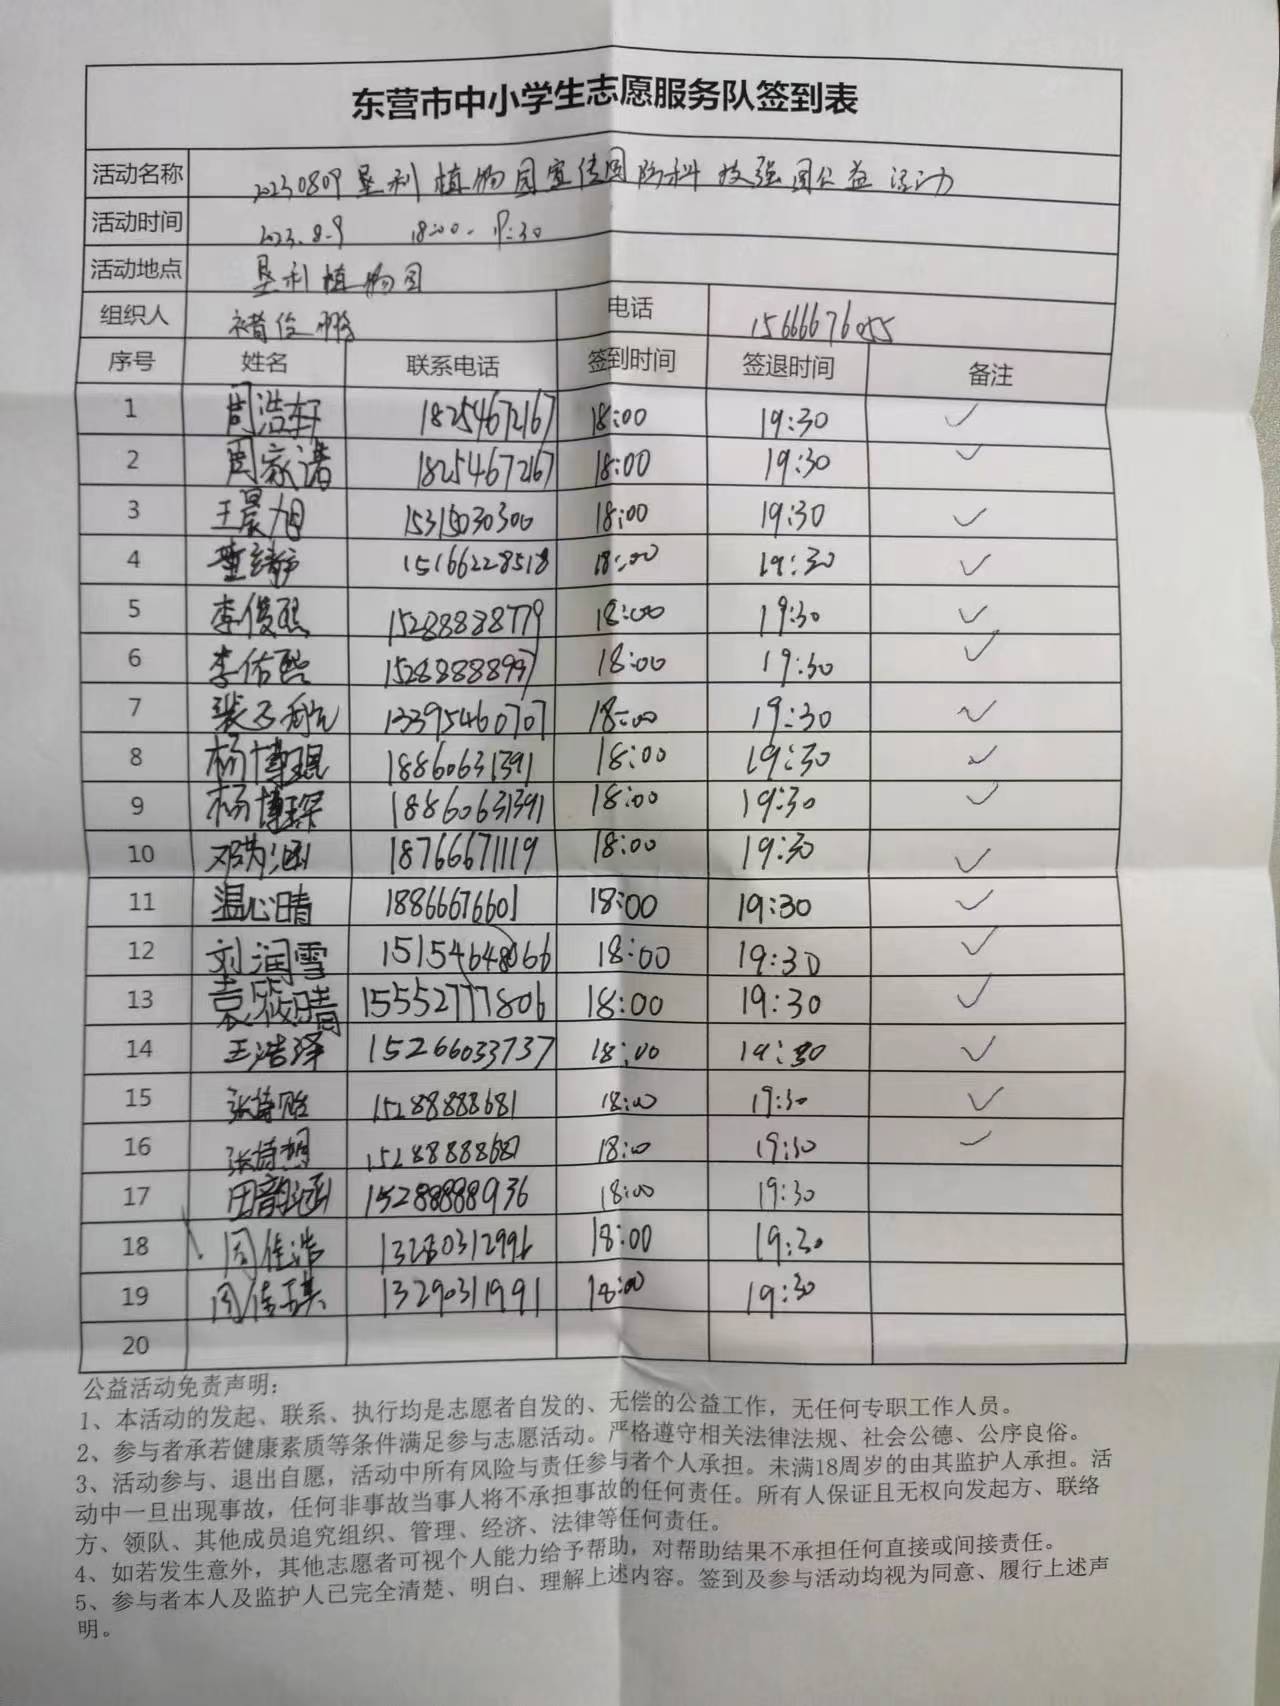 东营市中小学生志愿服务队签到表
活动名称 20230809垦利植物园宣传国防科技强国公益活动
活动时间 2023.8.9 18:00-19:30
活动地点 垦利植物园
组织人 褚俊鹏 电话 15666676055
序号 姓名 联系电话 签到时间 签退时间 备注
1 周浩轩 18254672167 18:00 19:30 ✓
2 周家诺 18254672167 18:00 19:30 ✓
3 王晨旭 15315030300 18:00 19:30 ✓
4 15166228518 18:00 19:30 ✓
5 李俊熙 15288888779 18:00 19:30 ✓
6 李佑熙 15288888997 18:00 19:30 ✓
7 裴子航 13395460707 18:00 19:30 ✓
8 杨博琨 18860631391 18:00 19:30 ✓
9 杨博琛 18860631391 18:00 19:30 ✓
10 18766671119 18:00 19:30 ✓
11 温心晴 18866676601 18:00 19:30 ✓
12 刘润雪 15154648066 18:00 19:30 ✓
13 袁筱晴 15552777806 18:00 19:30 ✓
14 王浩泽 15266033737 18:00 19:30 ✓
15 张诗贻 15288888681 18:00 19:30 ✓
16 张诗 15288888681 18:00 19:30 ✓
17 田韵涵 15288888936 18:00 19:30
18 周佳浩 18:00 19:30
19 周佳琪 13290311991 18:00 19:30
20
公益活动免责声明:
1、本活动的发起、联系、执行均是志愿者自发的、无偿的公益工作，无任何专职工作人员。
2、参与者承若健康素质等条件满足参与志愿活动。严格遵守相关法律法规、社会公德、公序良俗。
3、活动参与、退出自愿，活动中所有风险与责任参与者个人承担。未满18周岁的由其监护人承担。活
动中一旦出现事故，任何非事故当事人将不承担事故的任何责任。所有人保证且无权向发起方、联络
方、领队、其他成员追究组织、管理、经济、法律等任何责任。
4、如若发生意外，其他志愿者可视个人能力给予帮助，对帮助结果不承担任何直接或间接责任。
5、参与者本人及监护人已完全清楚、明白、理解上述内容。签到及参与活动均视为同意、履行上述声
明。